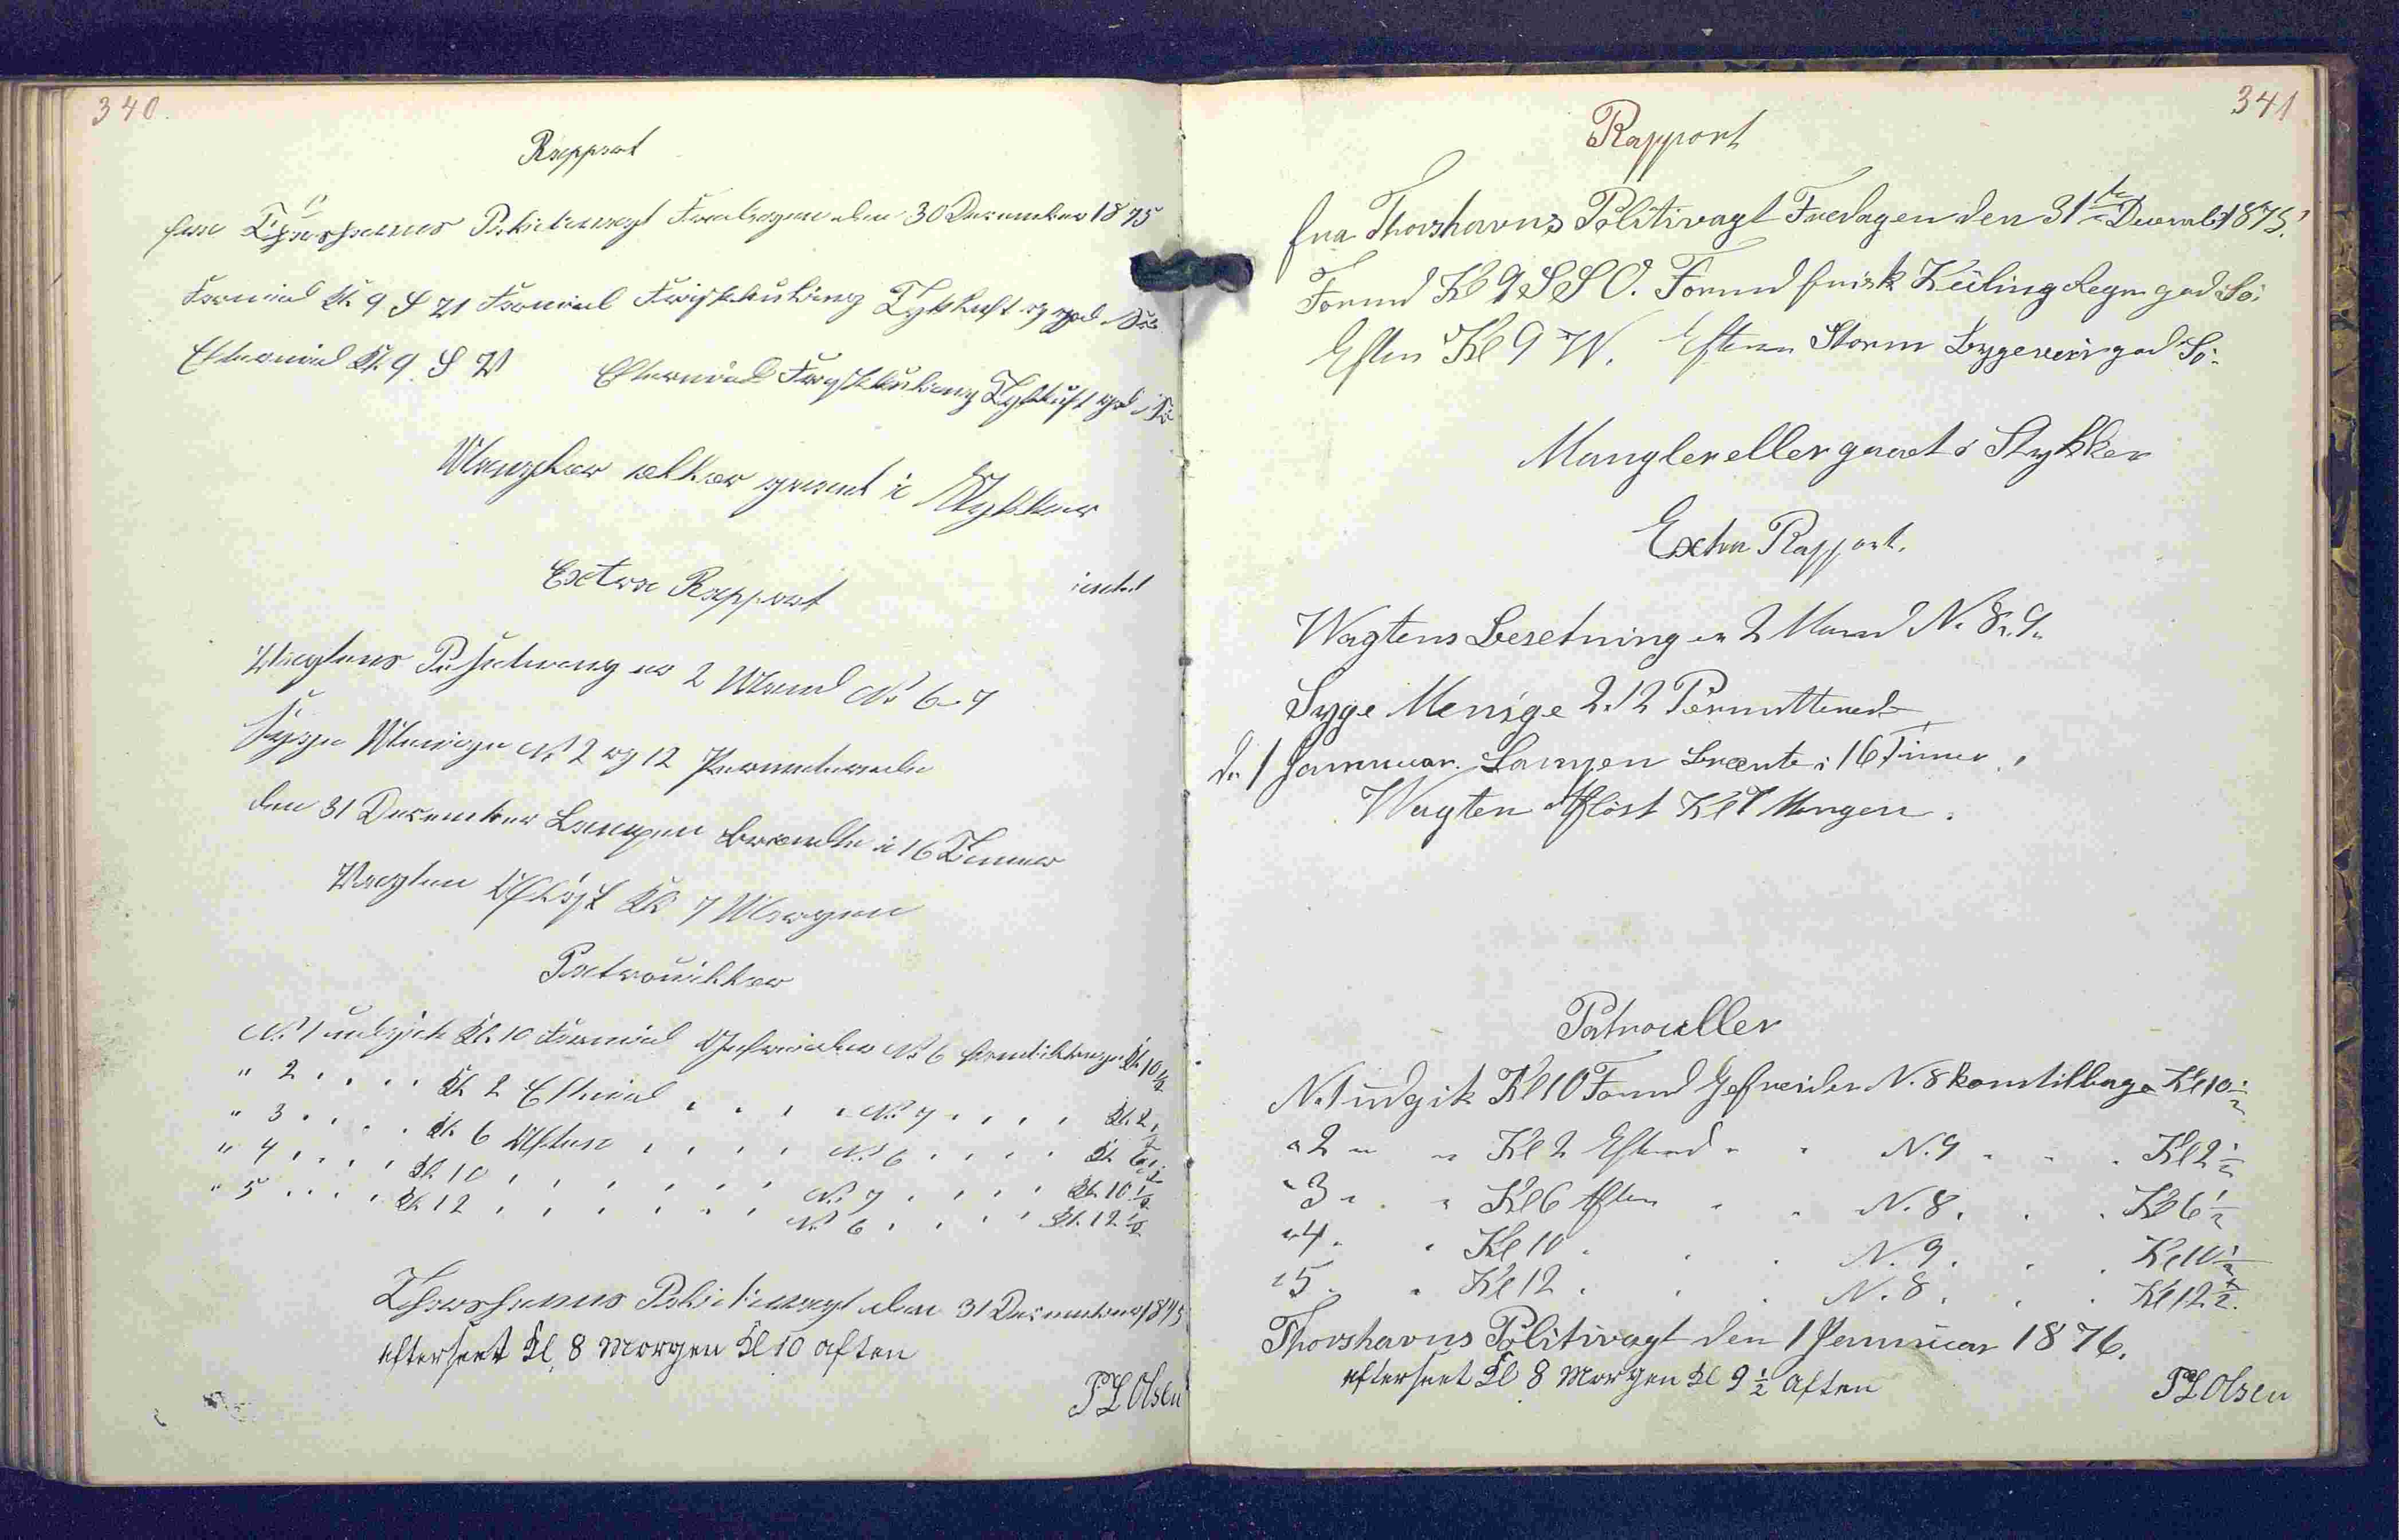 340
Rapport
fra Thorshavns Politivagt Torsdagen den 30 December 1875
Formid Kl. 9 S V Formid Friskkuling Tykluft og god Sö
Eftermid Kl. 9 S V Eftermid Friskkuling Tykluft god Sö
Mangler eller gaaet i Stykker
Extra Rapport intet
Vagtens Besætning er 2 Mand No 6-7
Syge Menige No 2 og 12 Permiterede
den 31 December Lampen brændte i 16 Timer
Vagten Aflöst Kl 7 Morgen
Patrouiller
No 1 udgik Kl. 10 Formid Gefreider No 6 kom tilbage Kl. 10 1/2
" 2 . . . . Kl. 2 Eftmid . . . . No. 7 . . . . Kl. 2 1/2
" 3 . . . . Kl. 6 Aften . . . . No. 6 . . . . Kl. 6 1/2
" 4 . . . . Kl. 10 . . . . . . No. 7 . . . . Kl. 10 1/2
" 5 . . . . Kl. 12 . . . . . . No. 6 . . . . Kl. 12 1/2
Thorshavns Politivagt den 31 December 1875
efterseet Kl. 8 Morgen Kl 10 aften
P L Olsen
341
Rapport
fra Thorshavns Politivagt Fredagen den 31te Decemb 1875.
Formd Kl 9 S S O. Formd frisk Küling Regn god Sö.
Eften Kl 9 W. Eften Storm Bygeveir god Sö.
Mangler eller gaaet i Stykker
Extra Rapport.
Wagtens Besetning er 2 Mand N. 8. 9.
Syge Menige 2. 12 Permitterede
d. 1 Januuar. Lampen brænte i 16 Timer.
Wagten Aflöst Kl 7 Morgen.
Patrouller
N. 1 udgik Kl 10 Formd Gefreider N. 8 kom tilbage Kl 10 1/2
" 2 " " Kl 2 Eftmd " " N. 9 . . . Kl 2 1/2
" 3 " " Kl 6 Aften . . N. 8 . . . Kl 6 1/2
" 4 . . Kl 10 . . . N. 9 . . . Kl 10 1/2
" 5 . . Kl 12 . . . N. 8 . . . Kl 12 1/2.
Thorshavns Politivagt den 1 Januuar 1876.
efterseet Kl 8 Morgen Kl 9 1/2 Aften
P L Olsen